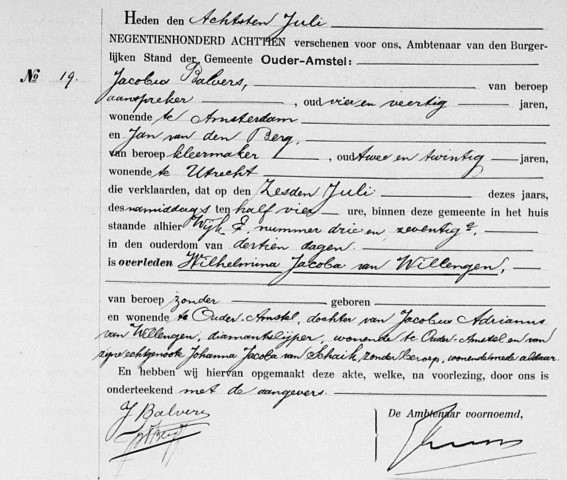 Heden den Achtsten Juli
NEGENTIENHONDERD ACHTTIEN verschenen voor ons, Ambtenaar van den Burger-
lijken Stand der Gemeente Ouder-Amstel:
No 19.
Jacobus Balvers, van beroep
aanspreker, oud vier en veertig jaren,
wonende te Amsterdam
en Jan van den Berg,
van beroep kleermaker, oud twee en twintig jaren,
wonende te Utrecht
die verklaarden, dat op den Zesden Juli dezes jaars,
des namiddags ten half vier ure, binnen deze gemeente in het huis
staande alhier Wijk E, nummer drie en zeventig
in den ouderdom van dertien dagen.
is overleden Wilhelmina Jacoba van Willengen,
van beroep zonder geboren
en wonende te Ouder-Amstel, dochter van Jacobus Adrianus
van Willengen, diamantslijper, wonende te Ouder-Amstel en van
zijne echtgenoote Johanna Jacoba van Schaik, zonder beroep, wonende mede aldaar.
En hebben wij hiervan opgemaakt deze akte, welke, na voorlezing, door ons is
onderteekend met de aangevers.
J Balvers
De Ambtenaar voornoemd,